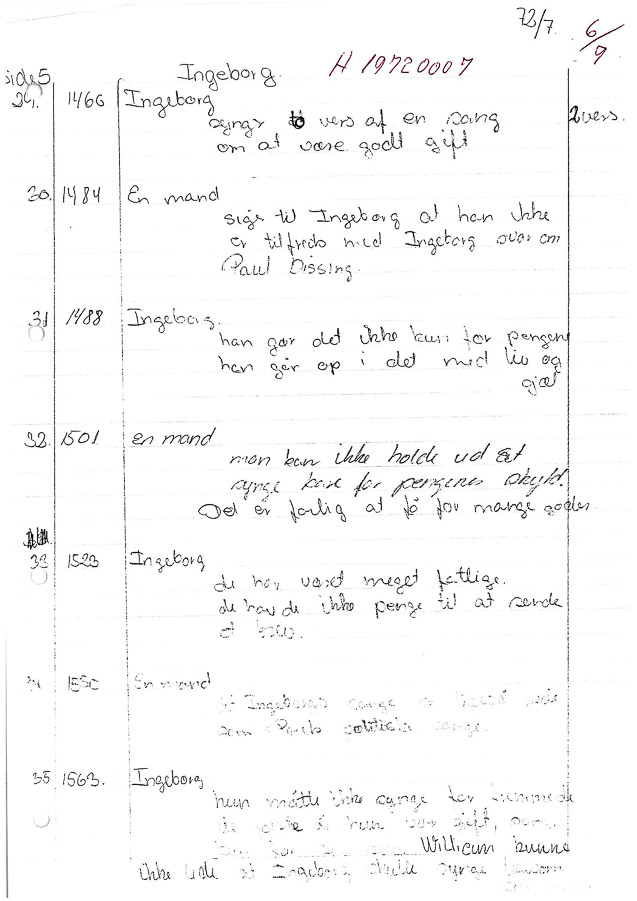 72/7. 6/9
side 5 Ingeborg. H 19720007
29. 1466 Ingeborg
synger to vers af en sang 2 vers.
om at være godt gift
30. 1484 En mand
siger til Ingeborg at han ikke
er tilfreds med Ingeborg svar om
Paul Dissing.
31 1488 Ingeborg.
han gør det ikke kun for pengene
han går op i det med liv og
sjæl
32. 1501 en mand
man kan ikke holde ud at
synge bare for pengenes skyld.
Det er farlig at få for mange goder.
33 1523 Ingeborg
de har været meget fattige.
de havde ikke penge til at sende
et brev.
34 1550 En mand
at Ingeborgs sange er ligeså gode
som Pouls politiske sange.
35 1563. Ingeborg
hun måtte ikke synge for fremmede
de hun var gift,
William kunne
ikke lide at Ingeborg skulle synge